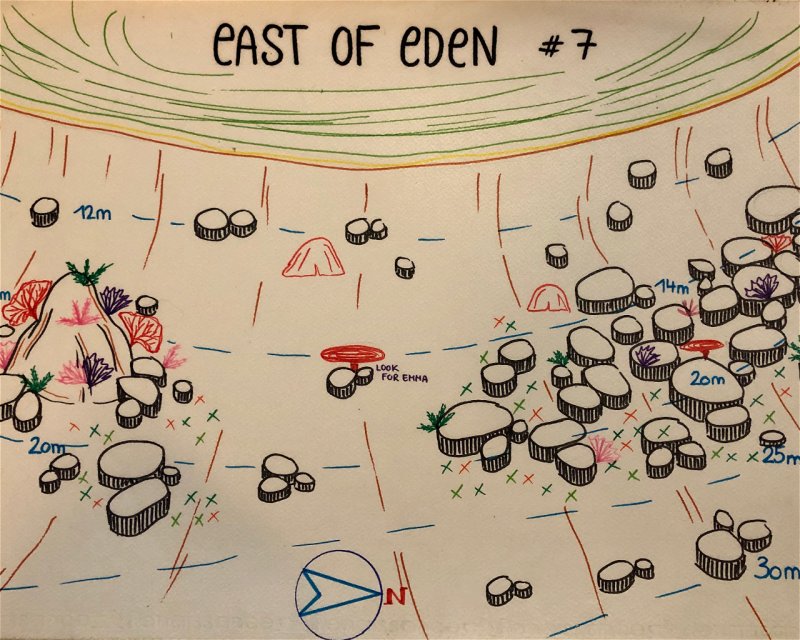 EAST OF EDEN #7
12m
m
14m
LOOK
FOR EMMA
20m
20m
25m
30m
N